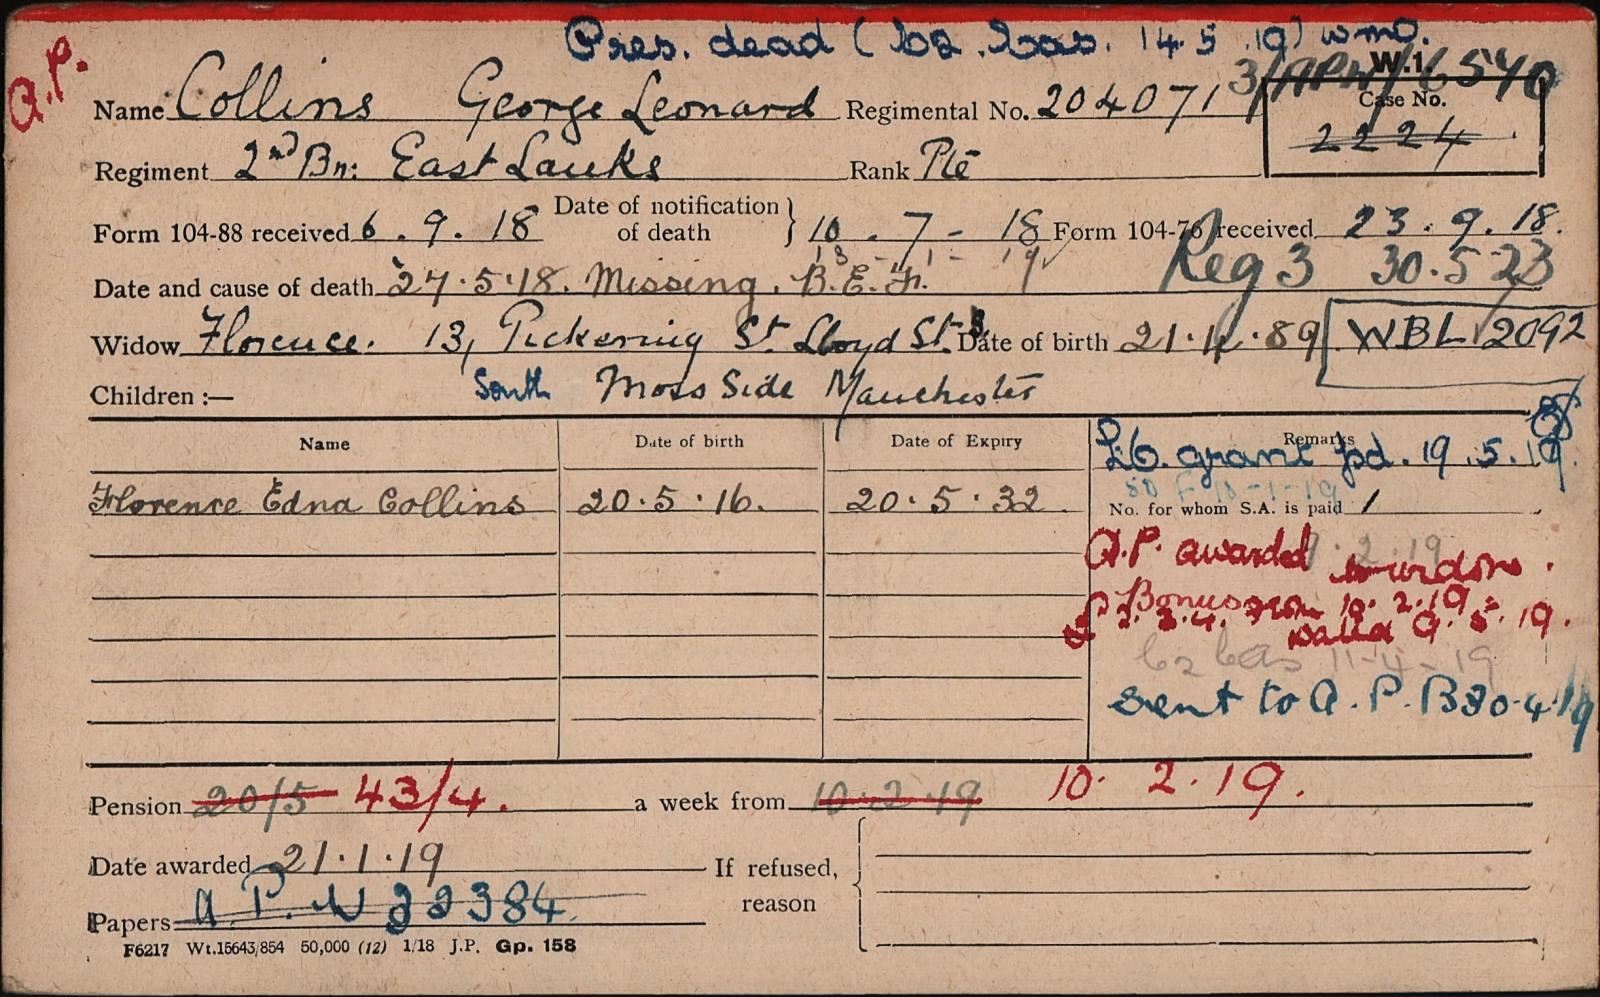 Pres. dead ( 14.5.19) wmo.
A.P.
W.1.
3/APW/6540
Name Collins George Leonard Regimental No. 204071
Case No.
2224
Regiment 2nd Bn: East Lancs Rank Pte
Form 104-88 received 6.9.18 Date of notification of death } 10-7-18 Form 104-76 received 23.9.18.
13-1-19
Date and cause of death 27.5.18. Missing. B.E.F. Reg 3 30.5.23
Widow Florence. 13, Pickering St. Lloyd St. Date of birth 21.4.89 WBL 2092
Children :— South Moss Side Manchester
Name Date of birth Date of Expiry Remarks
grant pd. 19.5.19.
Florence Edna Collins 20.5.16. 20.5.32
No. for whom S.A. is paid 1
A.P. awarded to widow.
Bonus from 10.2.19
9.5.19.
11-4-19
Sent to A.P.B 30.4.19
Pension 20/5 43/4. a week from 10.2.19 10.2.19.
Date awarded 21.1.19 If refused, reason
Papers A.P.W 22384.
F6217 Wt.15643/854 50,000 (12) 1/18 J.P. Gp. 158